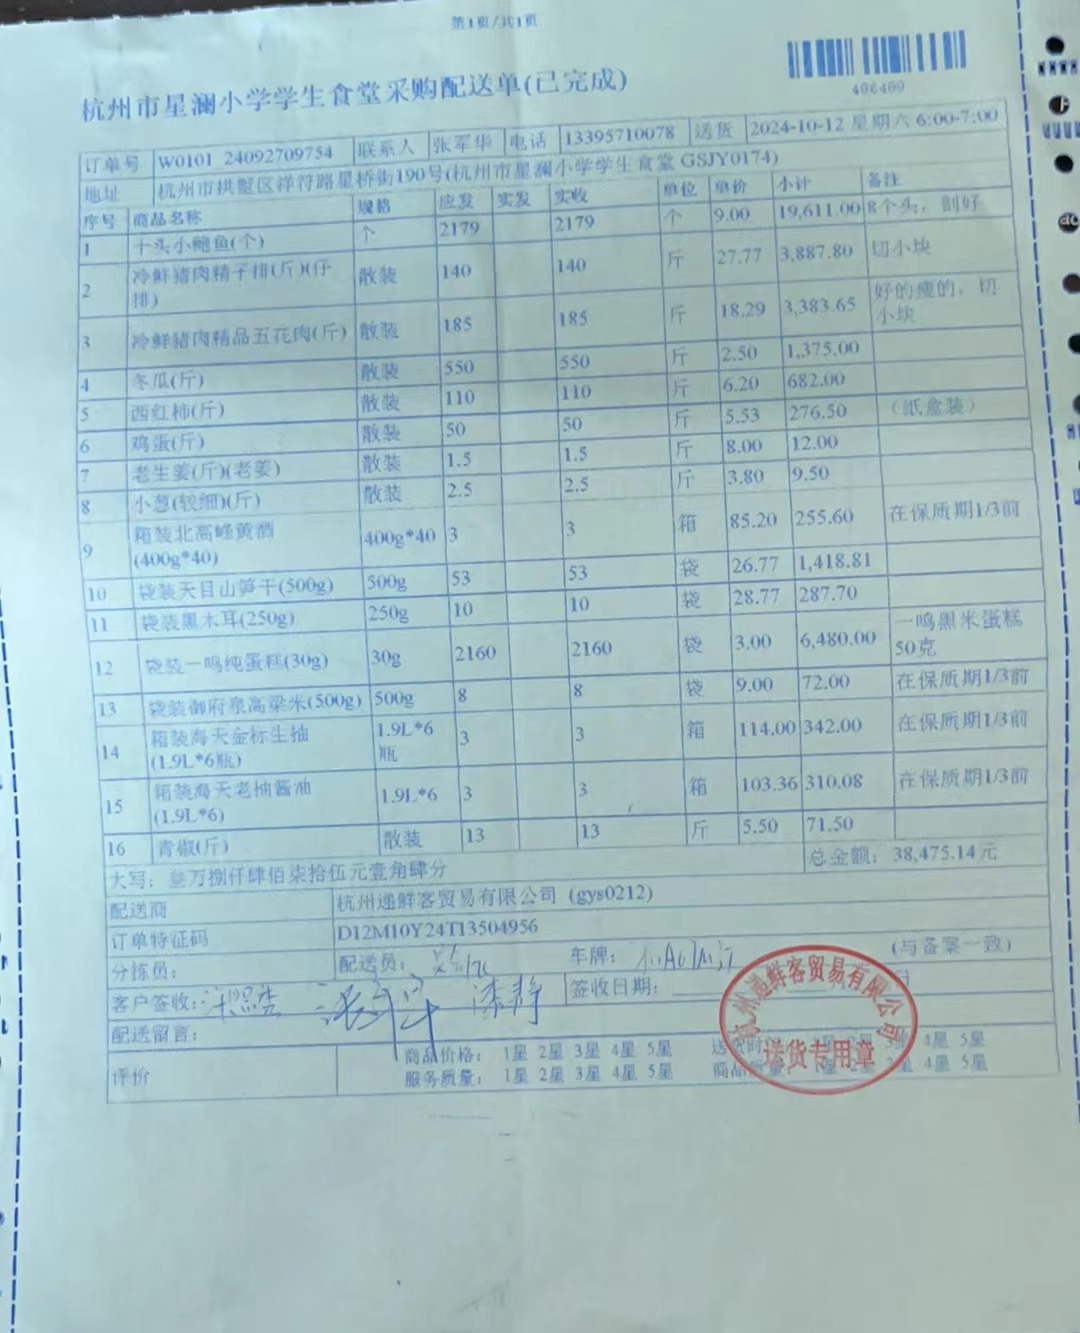 第1页/共1页
杭州市星澜小学学生食堂采购配送单(已完成)
406409
订单号 W0101 24092709754 联系人 张军华 电话 13395710078 送货 2024-10-12 星期六 6:00-7:00
地址 杭州市拱墅区祥符路星桥街190号(杭州市星澜小学学生食堂 GSJY0174)
序号 商品名称 规格 应发 实发 实收 单位 单价 小计 备注
1 十头小鲍鱼(个) 个 2179 2179 个 9.00 19,611.00 8个头，剖好
2 冷鲜猪肉精子排(斤)(仔排) 散装 140 140 斤 27.77 3,887.80 切小块
3 冷鲜猪肉精品五花肉(斤) 散装 185 185 斤 18.29 3,383.65 好的瘦的，切小块
4 冬瓜(斤) 散装 550 550 斤 2.50 1,375.00
5 西红柿(斤) 散装 110 110 斤 6.20 682.00
6 鸡蛋(斤) 散装 50 50 斤 5.53 276.50 （纸盒装）
7 老生姜(斤)(老姜) 散装 1.5 1.5 斤 8.00 12.00
8 小葱(较细)(斤) 散装 2.5 2.5 斤 3.80 9.50
9 箱装北高峰黄酒(400g*40) 400g*40 3 3 箱 85.20 255.60 在保质期1/3前
10 袋装天目山笋干(500g) 500g 53 53 袋 26.77 1,418.81
11 袋装黑木耳(250g) 250g 10 10 袋 28.77 287.70
12 袋装一鸣纯蛋糕(30g) 30g 2160 2160 袋 3.00 6,480.00 一鸣黑米蛋糕50克
13 袋装御府泉高粱米(500g) 500g 8 8 袋 9.00 72.00 在保质期1/3前
14 箱装海天金标生抽(1.9L*6瓶) 1.9L*6瓶 3 3 箱 114.00 342.00 在保质期1/3前
15 箱装海天老抽酱油(1.9L*6) 1.9L*6 3 3 箱 103.36 310.08 在保质期1/3前
16 青椒(斤) 散装 13 13 斤 5.50 71.50
大写：叁万捌仟肆佰柒拾伍元壹角肆分 总金额：38,475.14元
配送商 杭州递鲜客贸易有限公司 (gys0212)
订单特征码 D12M10Y24T13504956
分拣员： 配送员： 车牌： (与备案一致)
客户签收： 签收日期：
配送留言：
评价 商品价格： 1星 2星 3星 4星 5星
服务质量： 1星 2星 3星 4星 5星
4星 5星
4星 5星
杭州递鲜客贸易有限公司
送货专用章